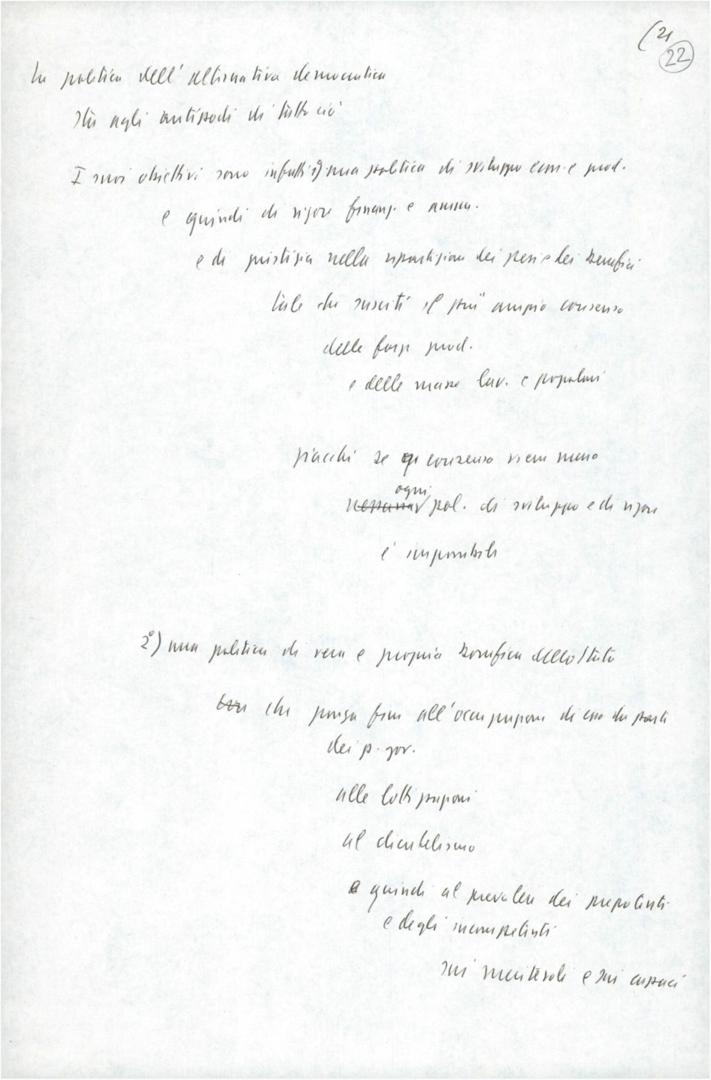 (21
22
La politica dell'alternativa democratica
sta agli antipodi di tutto ciò
I suoi obiettivi sono infatti 1) una politica di sviluppo econ. e prod.
e quindi di rigore finanz. e
e di giustizia nella ripartizione dei pesi e dei benefici
tale che susciti il più ampio consenso
delle forze prod.
e delle masse lav. e popolari
giacché se consenso viene meno
ogni
nessuna pol. di sviluppo e di rigore
è impossibile
2°) una politica di vera e propria bonifica dello Stato
che ponga fine all'occupazione di esso da parte
dei p. gov.
alle lottizzazioni
al clientelismo
e quindi al prevalere dei prepotenti
e degli incompetenti
sui meritevoli e sui capaci